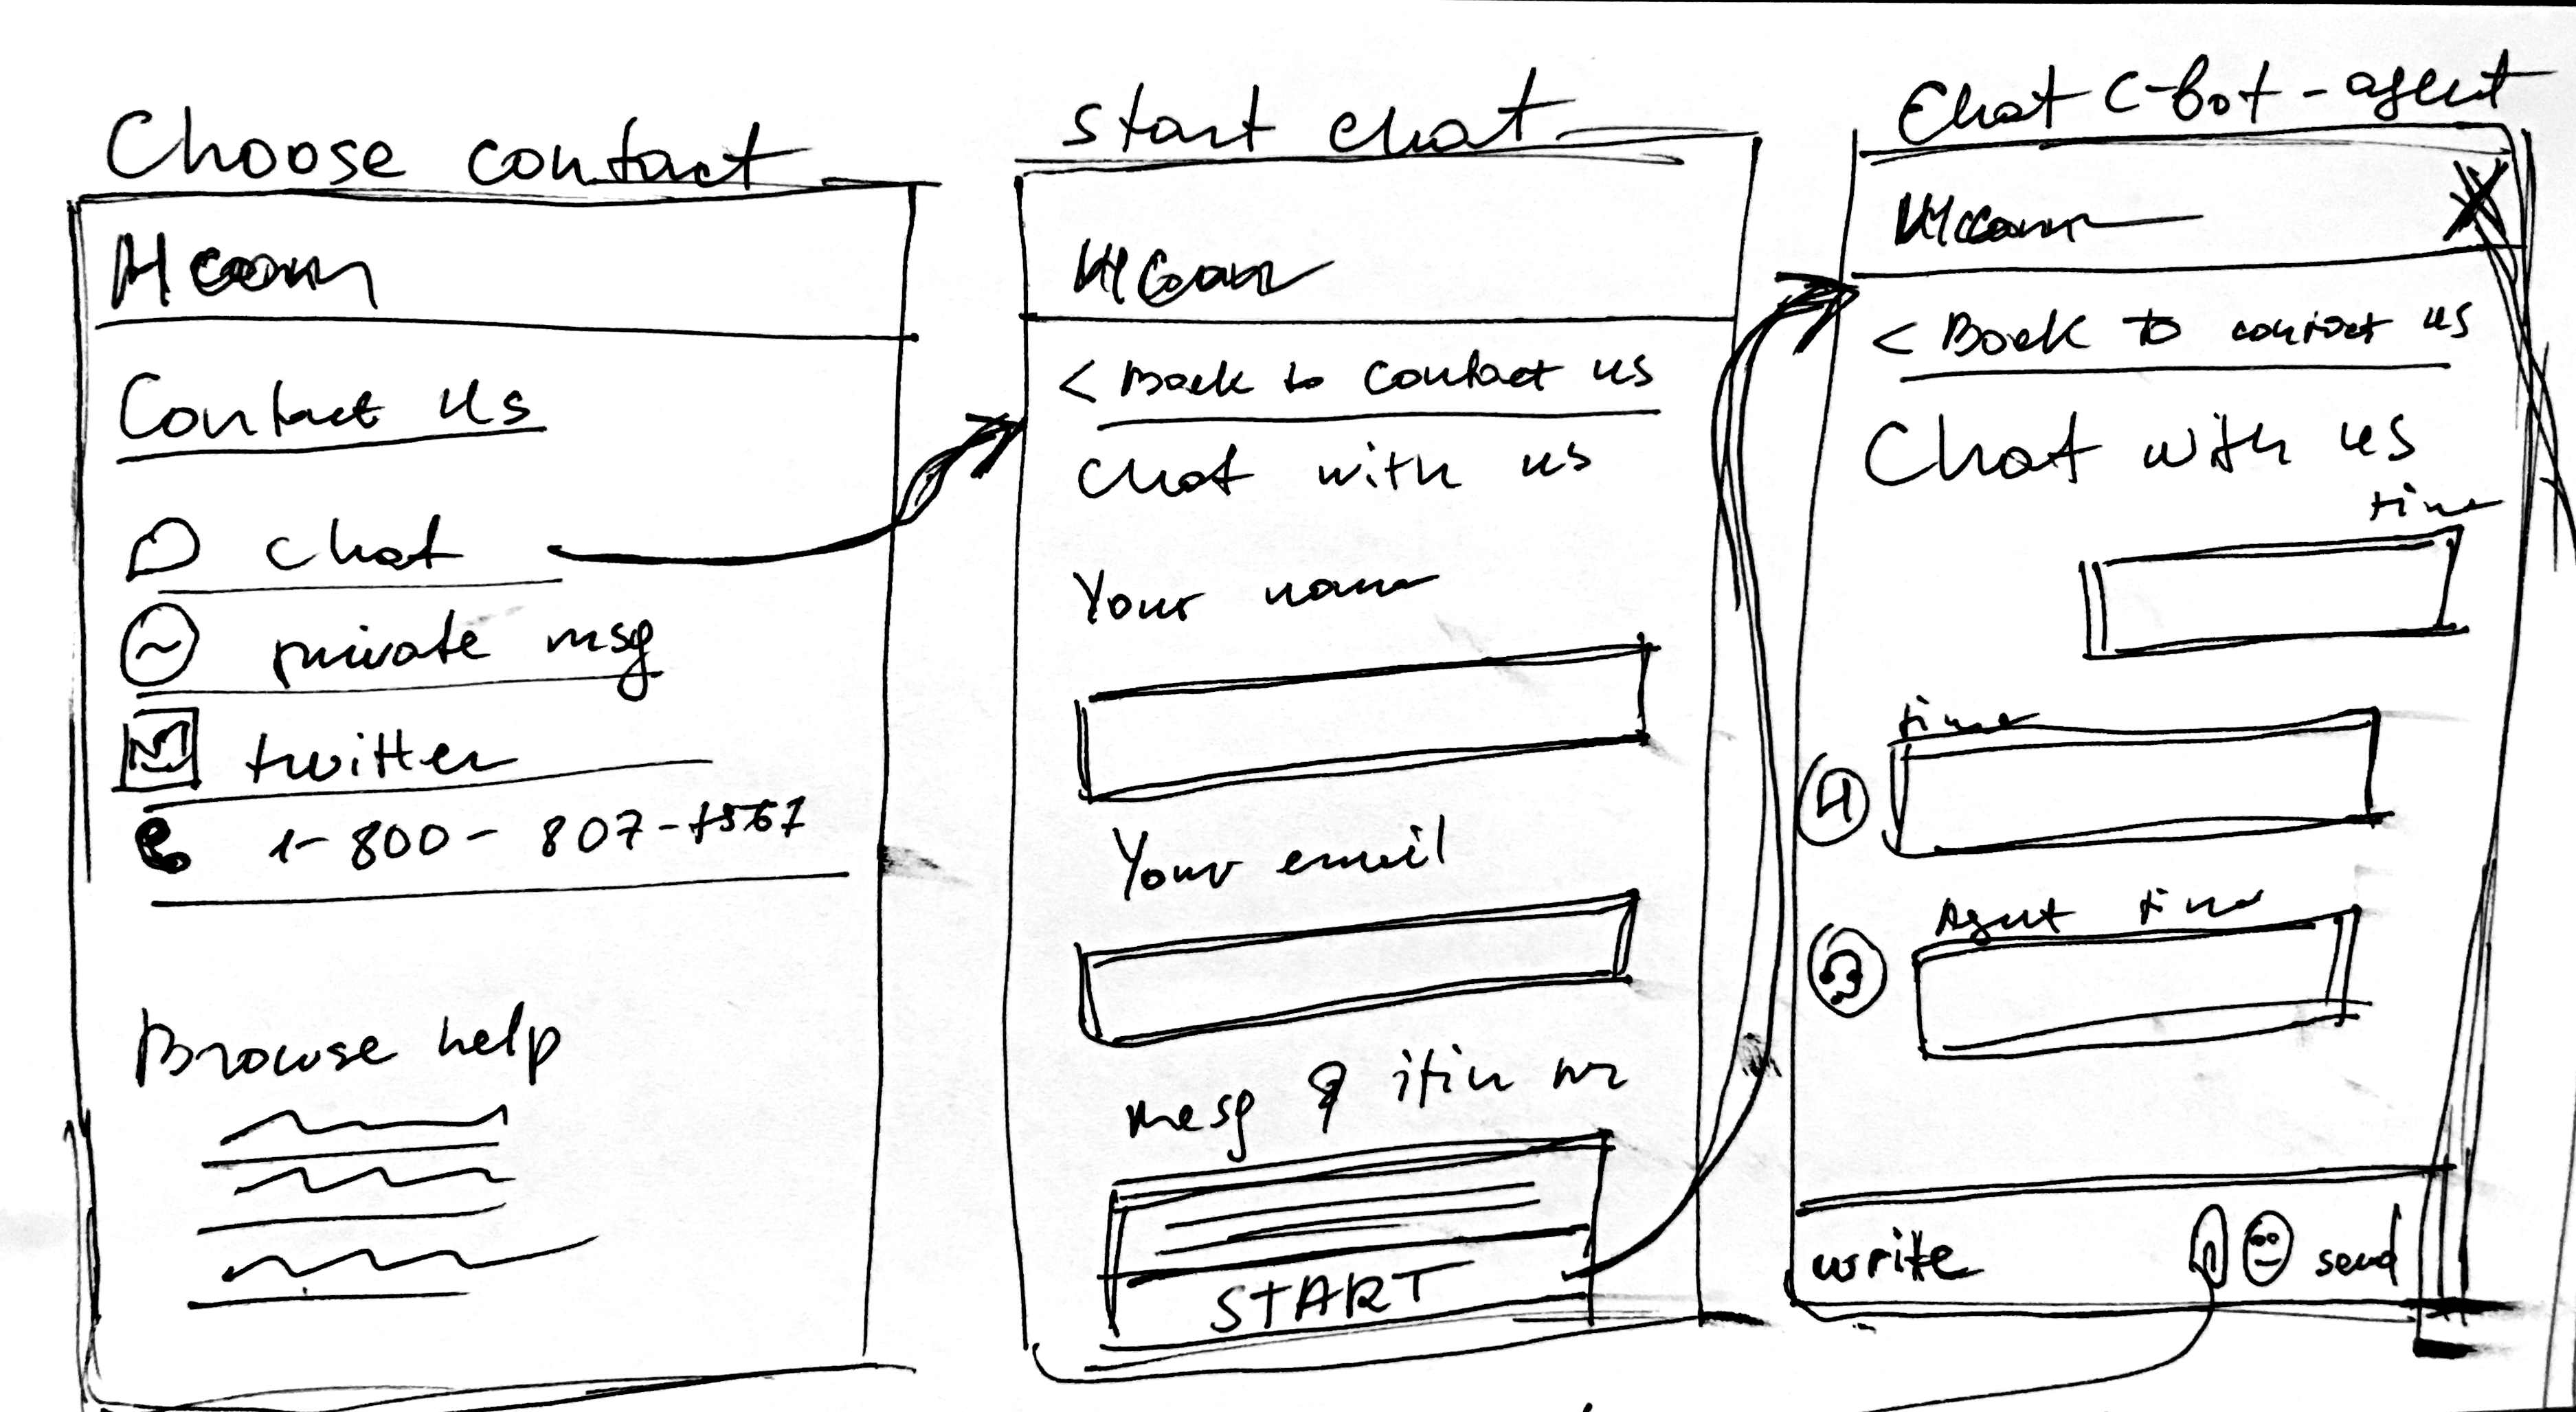 Choose contact
Contact us
chat
private msg
twitter
1-800-807-
Browse help
start chat
< Back to contact us
Chat with us
Your name
Your email
mesg & itin nr
START
Chat C-bot-agent
< Back to contact us
Chat with us
time
time
H
Agent time
write send